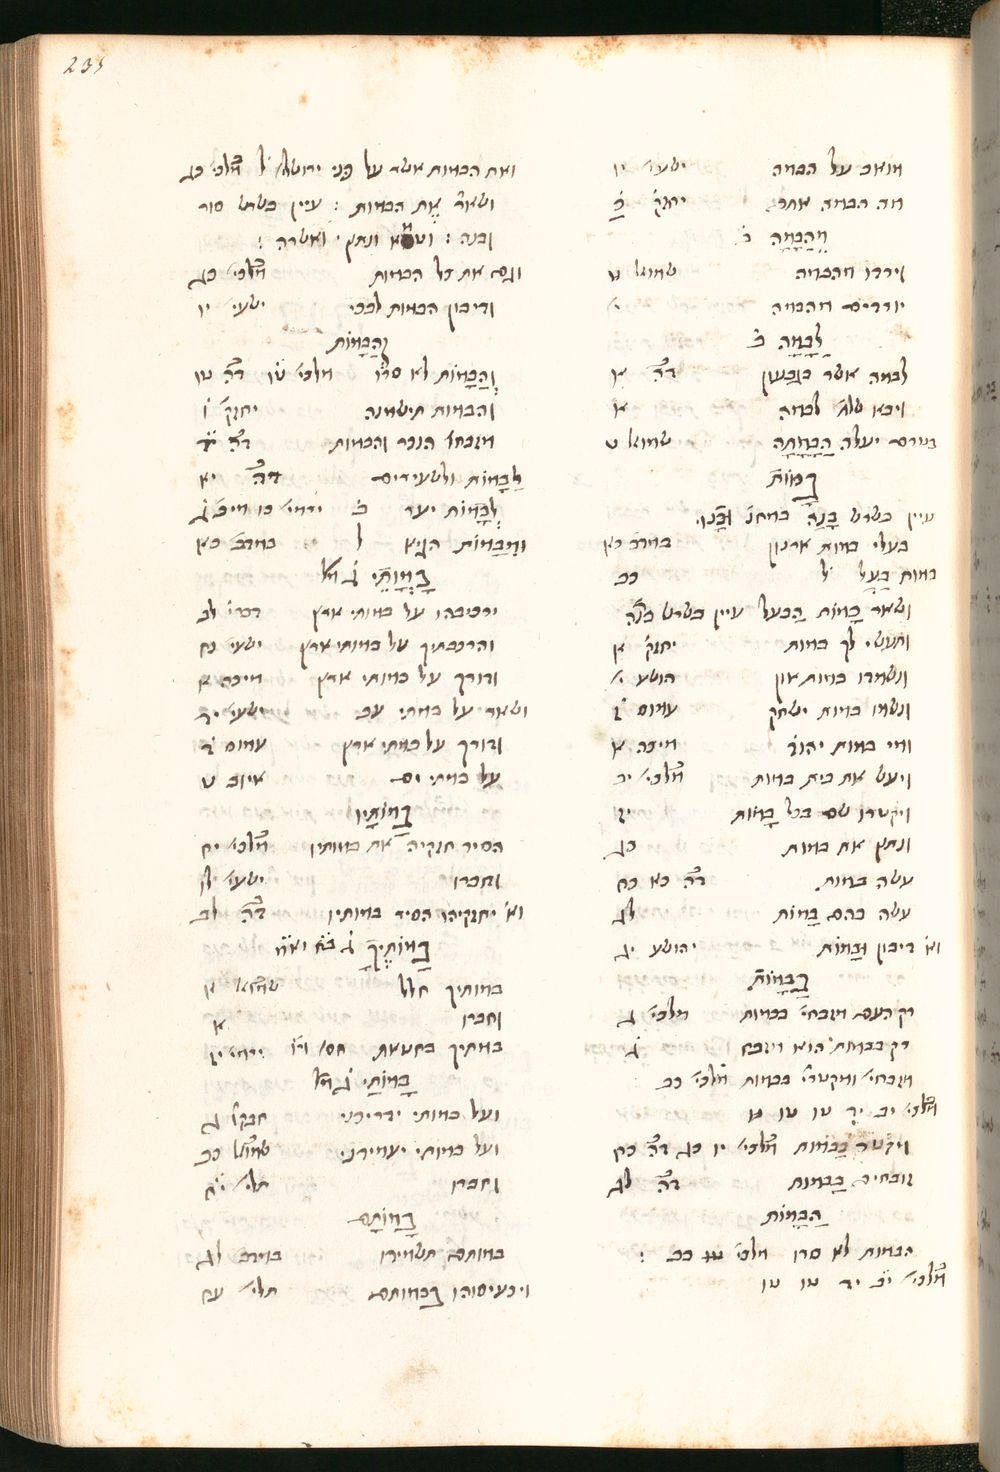 235
מואב על הבמה ישעי׳ יו
מה הבמה אשר יחזק׳ כ׳
מֵהַבָּמָה ב׳
וירדו מהבמה שמואל ט
יורדים מהבמה י׳
לַבָּמָה ב׳
לבמה אשר בגבעון דה׳ א
ויבא שלמ׳ לבמה א
בטרם יעלה הַבָּמָתָה שמואל ט
בָּמוֹת
עיין בשרש בָּנָה
בעלי במות ארנון במדב׳ כא
במות בָּעַל ל׳ כב
ושאר בָּמוֹת הַבעל עיין בשרש בנה
ותעשי לך במות יחזק׳ יו
ונשמדו במות און הושע י׳
ונשמו במות ישחק עמוס ז׳
ומי במות יהוד׳ מיכה א
ויעש את בית במות מלכי׳ יב
ויקטרו שם בכל בָּמוֹת יז
ונתץ את במות כג
עשה במות דה׳ כא כח
עשה בהם בָּמוֹת לג
וא׳ דיבון וּבָמוֹת יהושע יג
בַּבָּמוֹת
רק העם מזבחי׳ בבמות מלכי׳ ג
רק בבמות הוא מזבח ג׳
מזבחי׳ ומקטרי׳ בבמות מלכי׳ כב
מלכי׳ יב יד טו טו טז
ויקטר בַּבמות מלכי׳ יו כג דה׳ כח
זובחים בַּבמות דה׳ לג
הַבָּמוֹת
הבמות לא סרו מלכי׳ כב :
מלכי׳ יב יד טו טו
ואת הבמות אשר על פני ירושלי׳ ל׳ מלכי׳ כג
ושאר אֶת הבמות : עיין בשרש סור
ובנה : וטמא ונתץ ואשרה :
וגם את כל הבמות מלכי׳ כג
ודיבון הבמות לבכי ישעי׳ יו
וְהַבָּמוֹת
וְהַבָּמוֹת לא סרו מלכי׳ טו דה׳ טו
והבמות תישמנה יחזק׳ ו׳
מזבחות הנכר והבמות דה׳ יד
לַבָּמוֹת ולשעירים דה׳ יא
לְבָמוֹת יער ב׳ ירמי׳ כו מיכ׳ ג
וּמִבָּמוֹת הגיא ל׳ במדב׳ כא
בָּמֳתֵי
ירכיבהו על במותי ארץ דברי׳ לב
והרכבתיך על במותי ארץ ישעי׳ נח
ודרך על במותי ארץ מיכה א
ושאר על במתי עב ישעי׳ יד
ודורך על במתי ארץ עמוס ד׳
על במתי ים איוב ט
בָּמוֹתָיו
הסיר חזקיה את במותיו מלכי׳ יח
וחברו ישעי׳ לו
וא׳ יחזקיהו הסיר במותיו דה׳ לב
בָּמוֹתֶיךָ
במותיך חלל שמוא׳ א
וחברו א
במתיך בחטאת ירמי׳ יז
בָּמוֹתַי
ועל במותי ידריכני חבקו׳ ג
ועל במותי יעמידני שמוא׳ כב
וחברו תלי׳ יח
בָּמוֹתָם
במותם תשמידו במדב׳ לג
ויכעיסוהו בבמותם תלי׳ עח